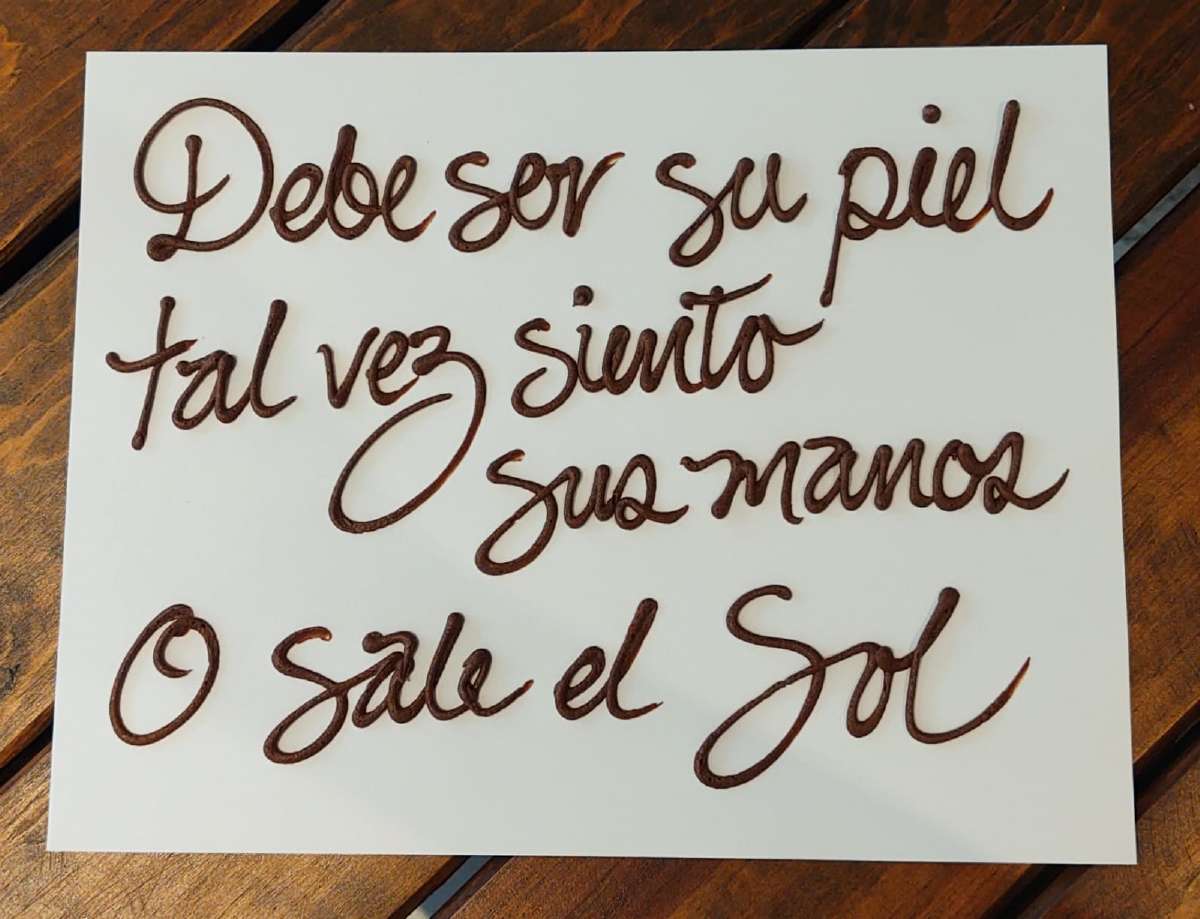 Debe ser su piel
tal vez siento
sus manos
O sale el Sol